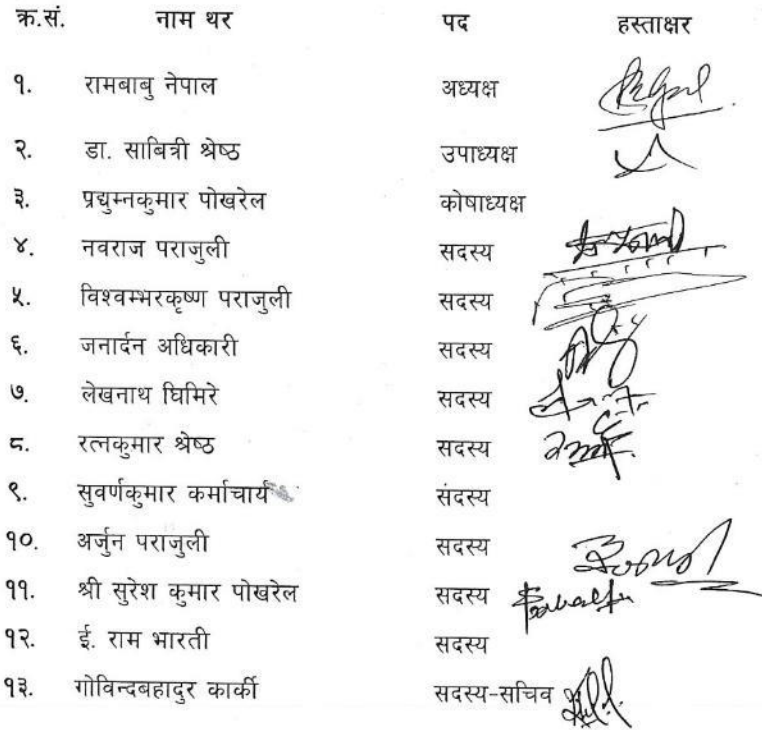 क्र.सं. नाम थर पद हस्ताक्षर
१. रामबाबु नेपाल अध्यक्ष
२. डा. साबित्री श्रेष्ठ उपाध्यक्ष
३. प्रद्युम्नकुमार पोखरेल कोषाध्यक्ष
४. नवराज पराजुली सदस्य
५. विश्वम्भरकृष्ण पराजुली सदस्य
६. जनार्दन अधिकारी सदस्य
७. लेखनाथ घिमिरे सदस्य
८. रत्नकुमार श्रेष्ठ सदस्य
९. सुवर्णकुमार कर्माचार्य संदस्य
१०. अर्जुन पराजुली सदस्य
११. श्री सुरेश कुमार पोखरेल सदस्य
१२. ई. राम भारती सदस्य
१३. गोविन्दबहादुर कार्की सदस्य-सचिव